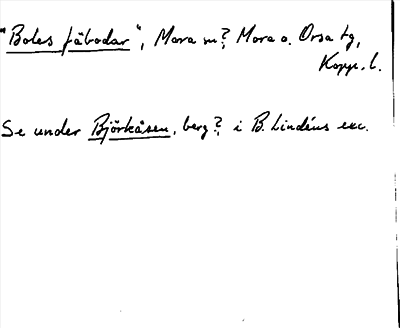 "Boles fäbodar", Mora sn?, Mora o. Orsa tg,
Kopp. l.
Se under Björkåsen, berg?, i B. Lindéns exc.